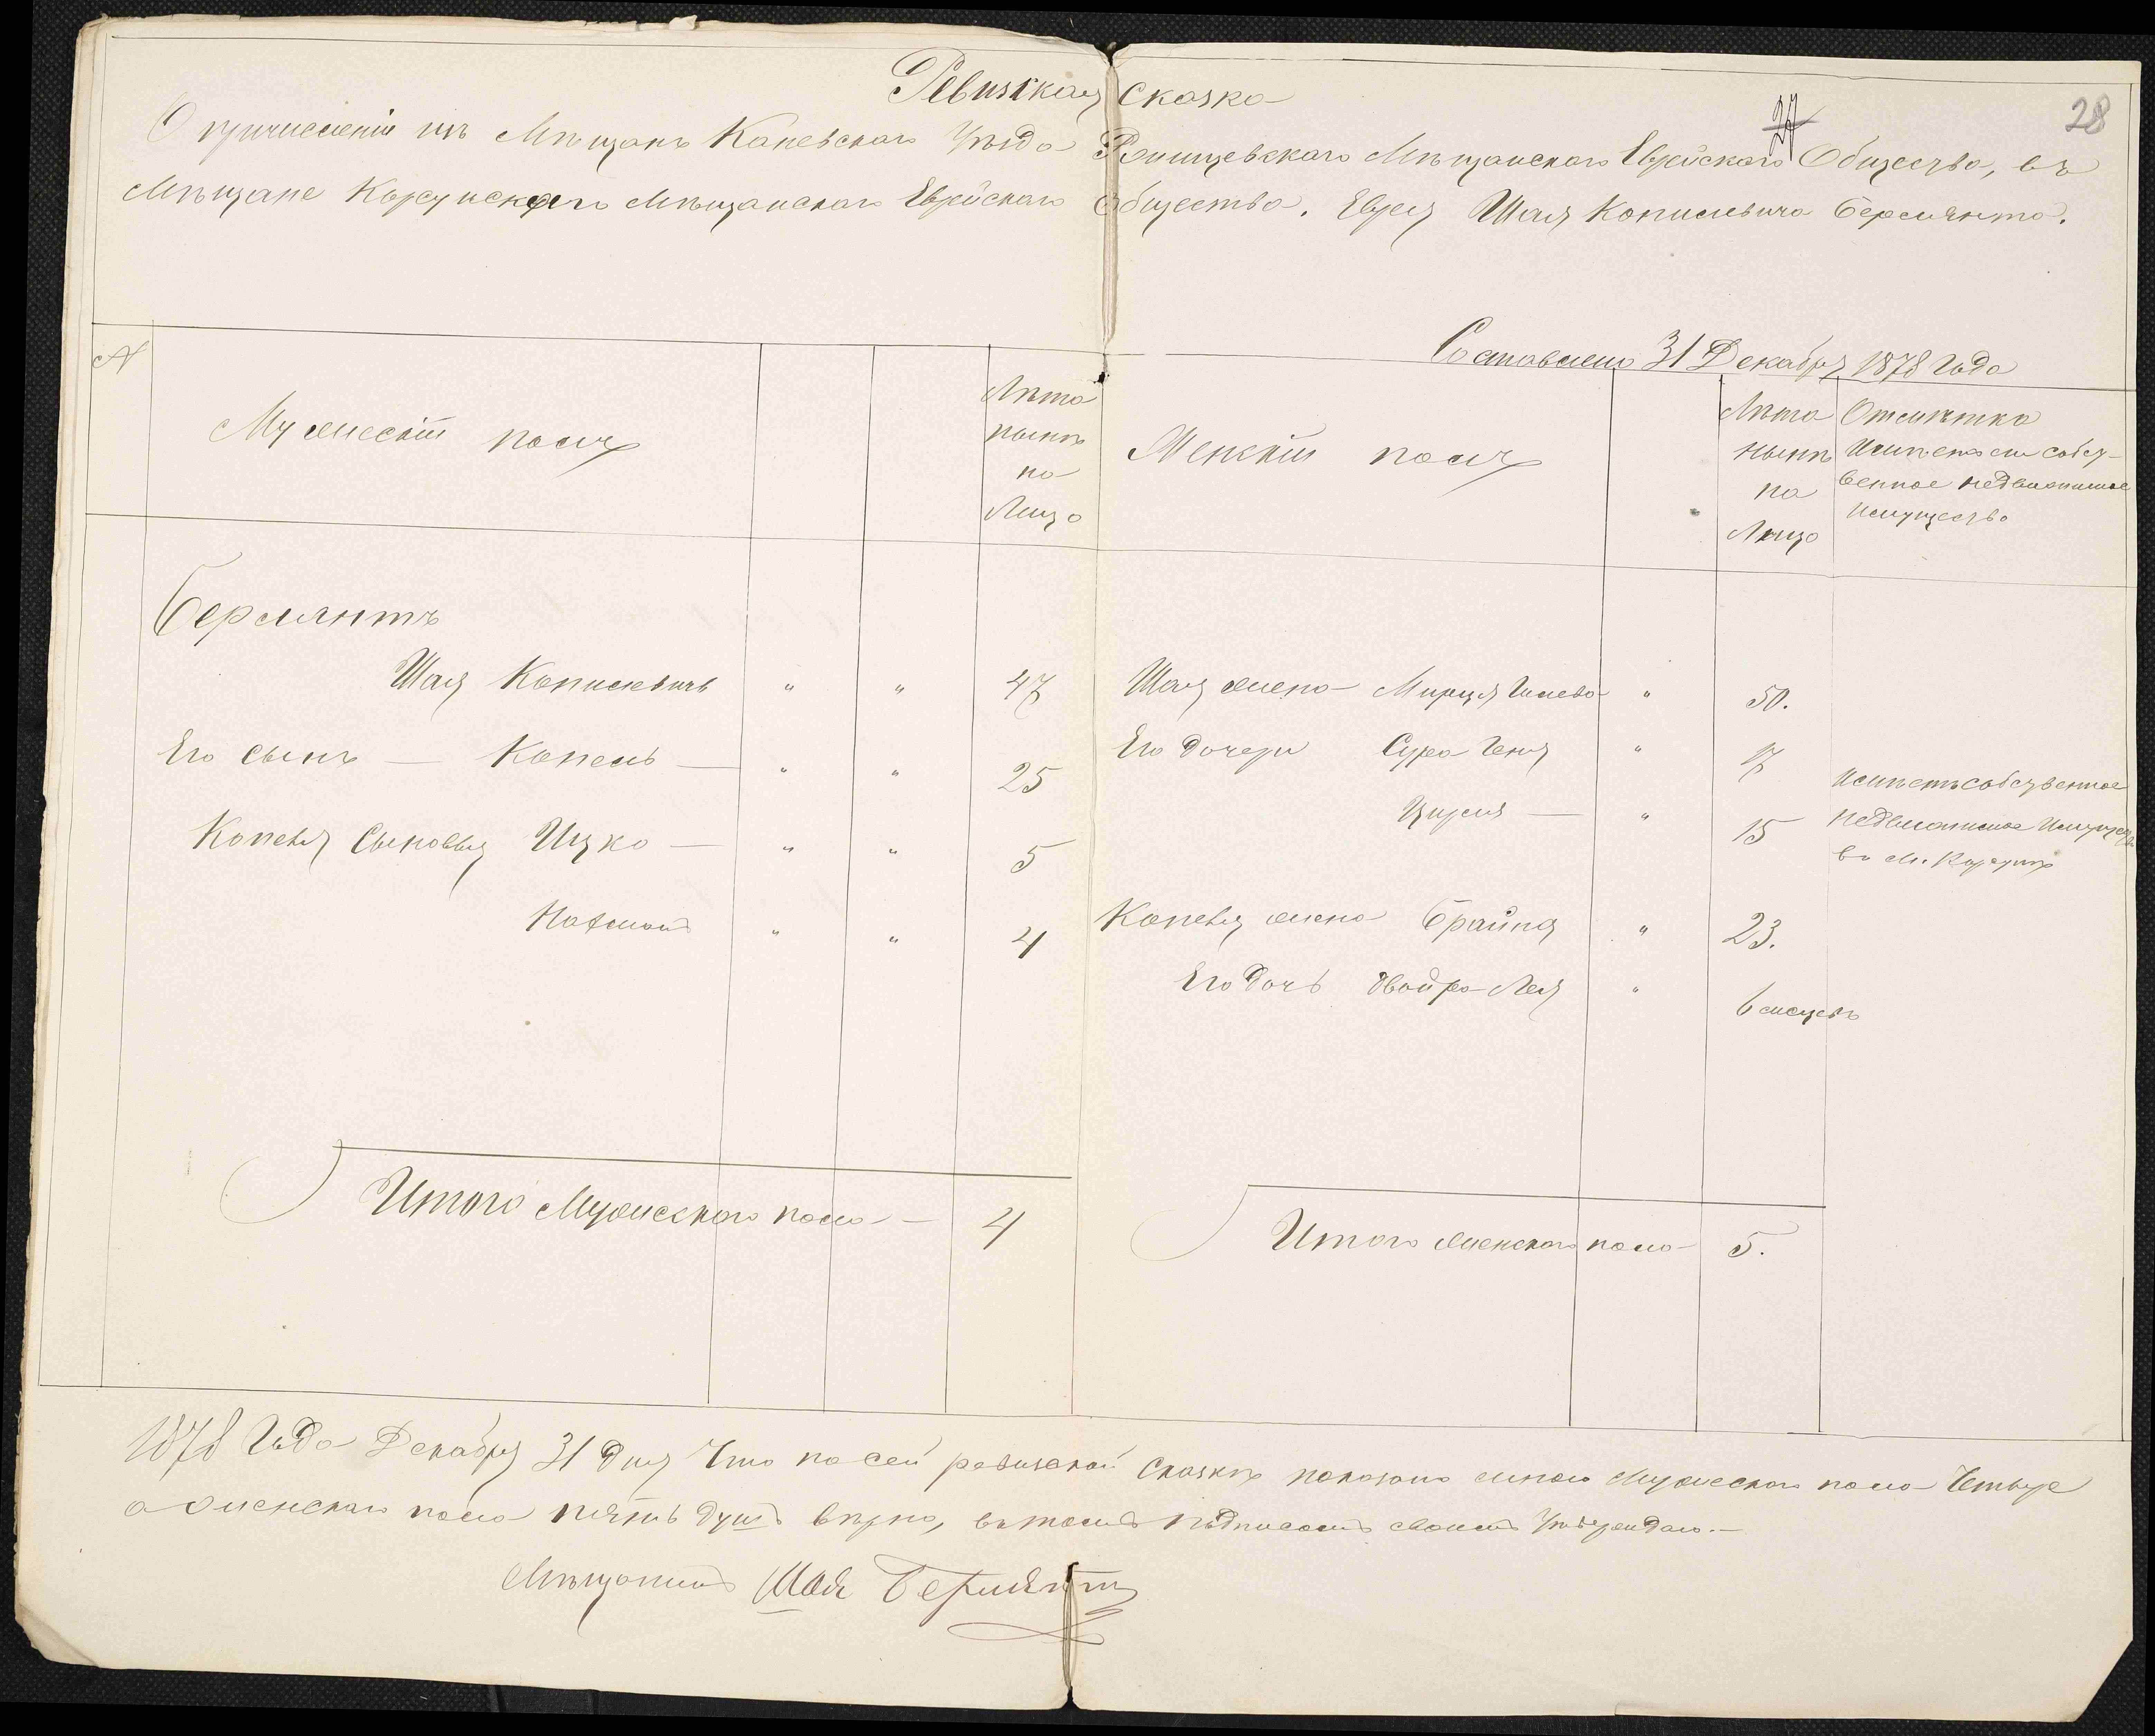 Ревизкая Сказка
27
28
О причислении изъ Мѣщанъ Каневскаго Уѣзда Ропищевскаго Мѣщанскаго Еврейскаго Общества, въ
Мѣщане Корсунскаго Мѣщанскаго Еврейскаго Общества. Еврея Шая Копилевича Берлянта.
Составлена 31 Декабря 1878 Года
№
Мужескій полъ
Лѣта
нынѣ
на
Лицо
Женскій полъ
Лѣта
нынѣ
на
Лицо
Отмѣтка
Имѣетъ ли собст-
венное недвижимое
имущество
Берлянтъ
Шая Копилевичъ " " 47
Шая жена Мирля " 50.
Его сынъ — Копель — " " 25
Его дочери Сура Геня " 17
Копеля Сыновья Ицко — " " 5
Цирля — " 15
Имѣетъ собственное
недвижимое Имущество
въ М. Корсунѣ
Нахманъ " " 4
Копеля жена Брайна " 23.
Его дочь Двойра-Лея " 6 месцевъ
Итого Мужескаго пола — 4
Итого женскаго пола — 5.
1878 Года Декабря 31 Дня Что по сей ревизской Сказкѣ показано мною Мужескаго пола Четыре
а женскаго пола пять душъ вѣрно, въ томъ подписомъ своимъ Утверждаю. —
Мѣщанинъ Шая Берлянтъ